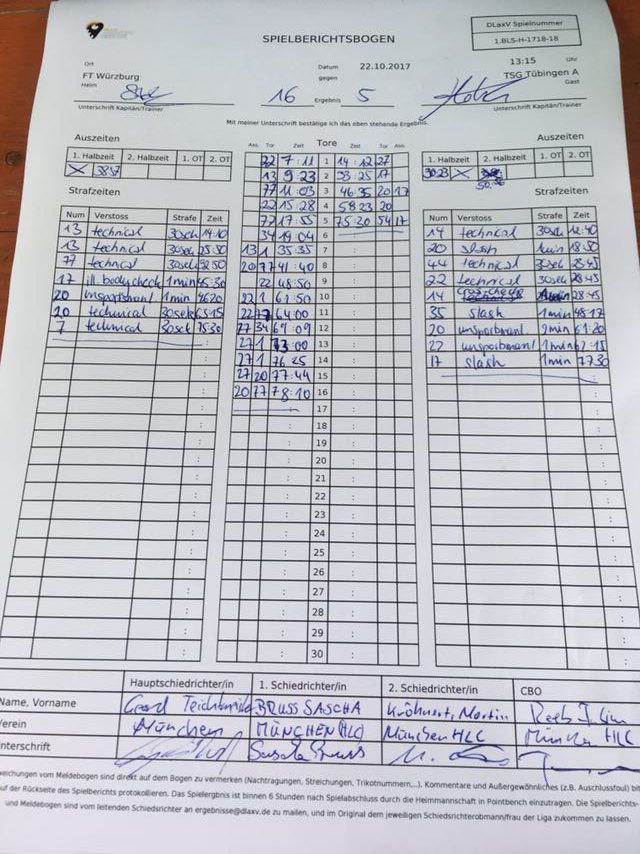 SPIELBERICHTSBOGEN
DLaxV Spielnummer
1.BLS-H-1718-18
Ort
FT Würzburg
Heim
Datum 22.10.2017
gegen
13:15 Uhr
TSG Tübingen A
Gast
16 Ergebnis 5
Unterschrift Kapitän/Trainer
Unterschrift Kapitän/Trainer
Mit meiner Unterschrift bestätige ich das oben stehende Ergebnis.
Auszeiten
1. Halbzeit 2. Halbzeit 1. OT 2. OT
X 38:57
Strafzeiten
Num Verstoss Strafe Zeit
13 technical 30sek 14:10
13 technical 30sek
77 technical 30sek
17 ill. bodycheck 1min 45:30
20 unsportsmanl 1min 46:20
20 technical 30sek 65:15
7 technical 30sek 75:30
Tore
Ass. Tor Zeit Zeit Tor Ass.
22 7:11 1 14:12 27
13 9:23 2 33:25 17
77 11:03 3 46:35 20 17
22 15:28 4 58:23 20
77 17:55 5 75:30 54 17
34 19:04 6
13 1 35:35 7
20 77 41:40 8
22 48:50 9
22 1 61:50 10
22 77 64:00 11
27 34 69:09 12
27 1 73:00 13
27 1 76:25 14
27 20 77:44 15
20 77 78:10 16
17
18
19
20
21
22
23
24
25
26
27
28
29
30
Auszeiten
1. Halbzeit 2. Halbzeit 1. OT 2. OT
30:23 X
50:56
Strafzeiten
Num Verstoss Strafe Zeit
14 technical 30sek 12:40
20 slash 1min 18:50
44 technical 30sek 28:45
22 technical 30sek 28:45
14 cross-check 28:45
35 slash 1min 48:17
20 unsportsmanl 2min 61:20
22 unsportsmanl 1min
17 slash 1min 77:30
Hauptschiedrichter/in 1. Schiedrichter/in 2. Schiedrichter/in CBO
Name, Vorname BRUSS SASCHA Kröhnert, Martin
Verein München MÜNCHEN (HLC) München HLC München HLC
Unterschrift
weichungen vom Meldebogen sind direkt auf dem Bogen zu vermerken (Nachtragungen, Streichungen, Trikotnummern,...). Kommentare und Außergewöhnliches (z.B. Ausschlussfoul) bit
auf der Rückseite des Spielberichts protokollieren. Das Spielergbnis ist binnen 6 Stunden nach Spielabschluss durch die Heimmannschaft in Pointbench einzutragen. Die Spielberichts-
und Meldebogen sind vom leitenden Schiedsrichter an ergebnisse@dlaxv.de zu mailen, und im Original dem jeweiligen Schiedsrichterobmann/frau der Liga zukommen zu lassen.